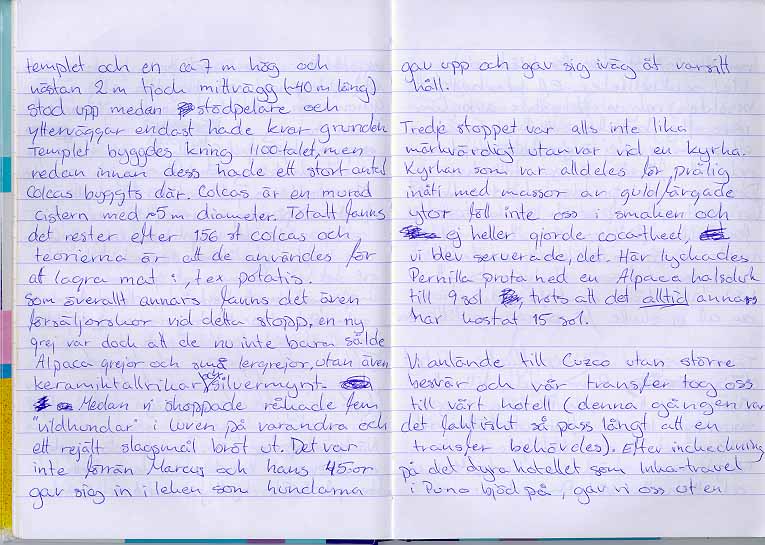 templet och en ca 7 m hög och
nästan 2 m tjock mittvägg (~40 m lång)
stod upp medan stödpelare och
ytterväggar endast hade kvar grunden
Templet byggdes kring 1100-talet, men
redan innan dess hade ett stort antal
Colcas byggts där. Colcas är en murad
cistern med ~5 m diameter. Totalt fanns
det rester efter 156 st colcas och
teorierna är att de användes för
att lagra mat i, tex potatis.
Som överallt annars fanns det även
försäljerskor vid detta stopp, en ny
grej var dock att de nu inte bara sålde
Alpaca grejor och små lergrejor, utan även
keramiktallrikar och silvermynt.
Medan vi shoppade råkade fem
"vildhundar" i luven på varandra och
ett rejält slagsmål bröt ut. Det var
inte förrän Marcus och hans 45:or
gav sig in i leken som hundarna
gav upp och gav sig iväg åt varsitt
håll.
Tredje stoppet var alls inte lika
märkvärdigt utan var vid en kyrha.
Kyrhan som var alldeles för prålig
inåti med massor av guldfärgade
ytor föll inte oss i smaken och
ej heller gjorde coca-theet,
vi blev serverade, det. Här lyckades
Pernilla pruta ned en Alpaca halsduk
till 9 sol, trots att det alltid annars
har kostat 15 sol.
Vi anlände till Cuzco utan större
besvär och vår transfer tog oss
till vårt hotell (denna gången var
det faktiskt så pass långt att en
transfer behövdes). Efter incheckning
på det dyra hotellet som Inka-travel
i Puno bjöd på, gav vi oss ut en